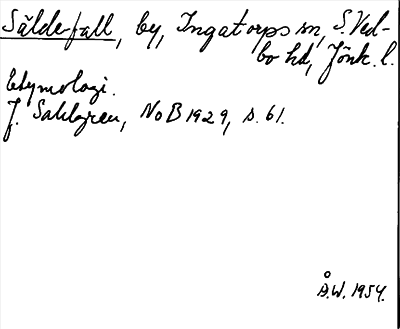 Sälde-fall, by, Ingatorps sn, S. Ved-
bo hd, Jönk. l.
Etymologi.
J. Sahlgren, NoB 1929, s. 61.
Å.W. 1954.